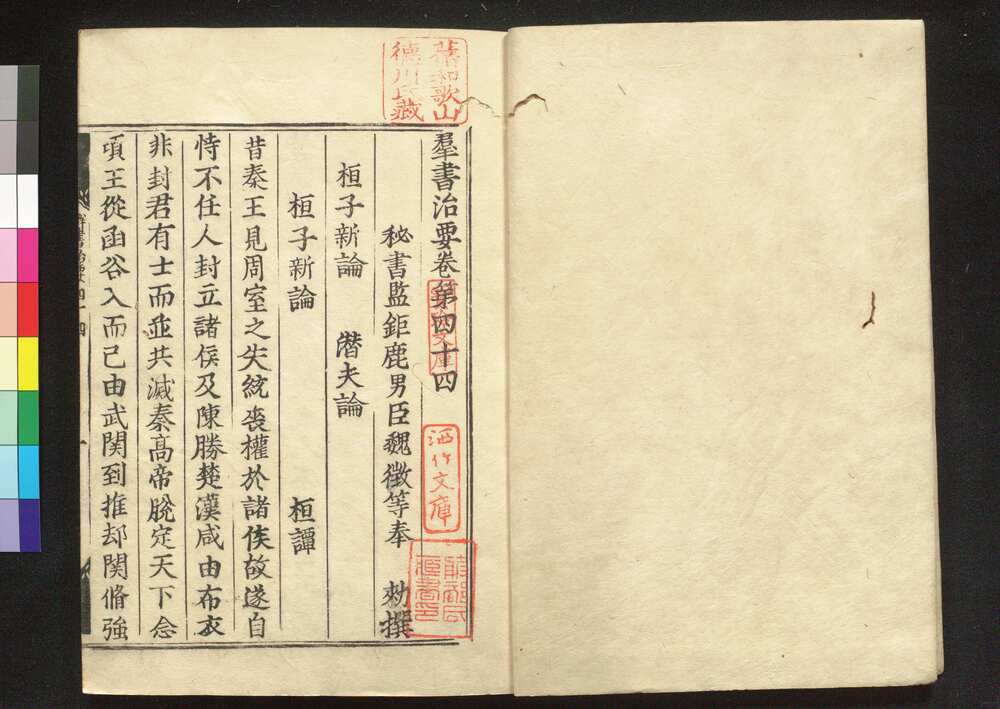 羣書治要卷第四十四
秘書監鉅鹿男臣魏徵等奉　勑撰
桓子新論　潛夫論
桓子新論　桓譚
昔秦王見周室之失統喪權於諸侯故遂自
恃不任人封立諸侯及陳勝楚漢咸由布衣
非封君有士而並共滅秦高帝旣定天下念
項王從函谷入而己由武関到推却関脩強
舊和歌山
德川氏藏
酒竹文庫